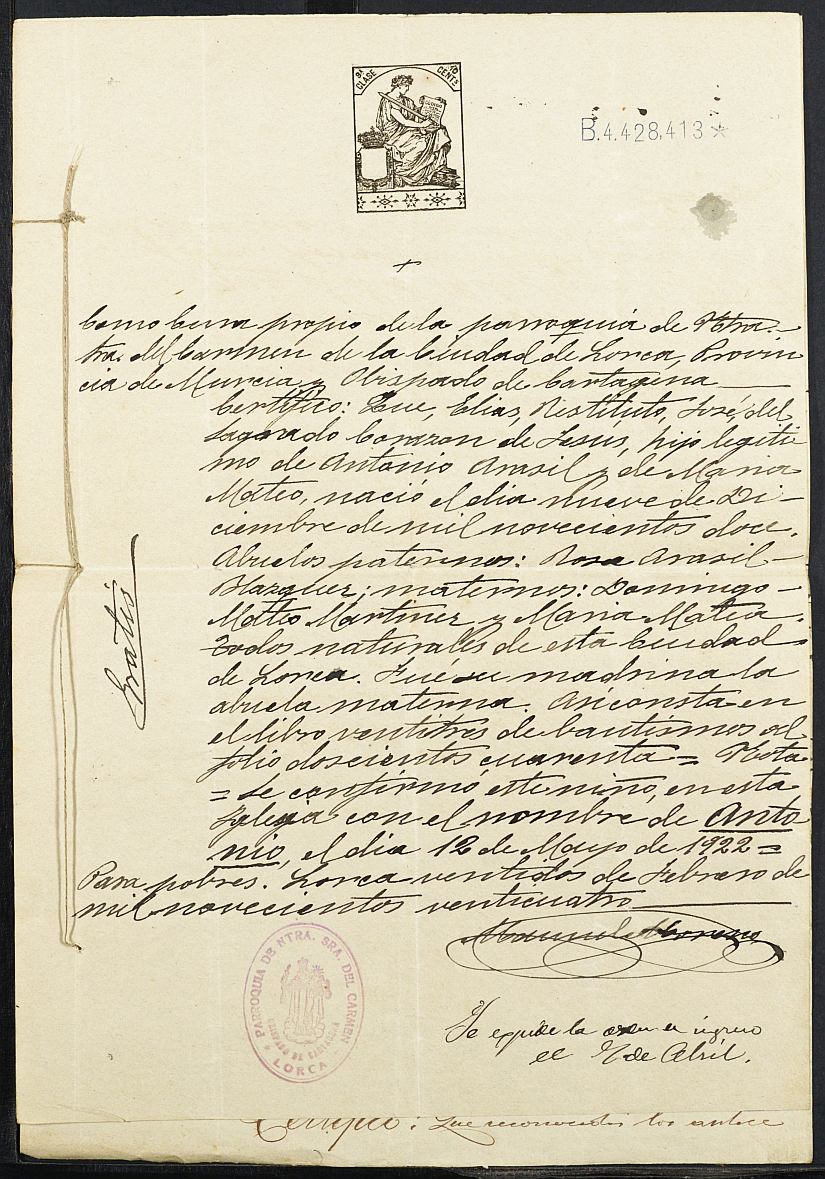 8ª CLASE 10 CENTS
B.4.428,413*
+
Como Cura propio de la parroquia de Ntra.
tra. del Carmen de la Ciudad de Lorca, Provin
cia de Murcia y Obispado de Cartagena
Certifico: Que, Elias, Restituto, José, del
Sagrado Corazon de Jesus, hijo legiti
mo de Antonio Arasil y de Maria
Mateo, nació el dia nueve de Di-
ciembre de mil novecientos doce.
Abuelos paternos: Rosa Arasil
Blazquez; maternos: Domingo
Mateo Martinez y Maria Matea.
Todos naturales de esta Ciudad
de Lorca. Fué su madrina la
abuela materna. Asi consta en
el libro ventitres de bautismos al
folio doscientos cuarenta = Nota
= Se confirmó este niño, en esta
Iglesia con el nombre de Anto
nio, el dia 12 de Mayo de 1922 =
Para pobres. Lorca ventidos de Febrero de
mil novecientos venticuatro
Gratis
Manuel Moreno
PARROQUIA DE NTRA. SRA. DEL CARMEN
OBISPADO DE CARTAGENA
LORCA
Se expide la orden de ingreso
el de Abril.
Certifico: Que reconocidos los antece